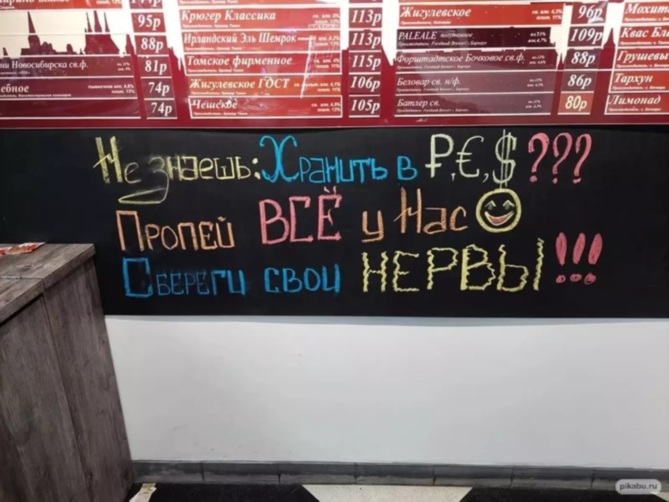 95р
88р
81р
74р
74р
Крюгер Классика 113р
Ирландский Эль Шемрок 113р
Томское фирменное 115р
Жигулевское ГОСТ 106р
Чешское 105р
Жигулевское 96р
PALEALE 109р
Форштадтское Бочковое св.ф. 88р
Беловар св. н/ф. 86р
Батлер св. 80р
Квас
Тархун
Лимонад
Не знаешь: Хранить в ₽,€,$???
Пропей ВСЁ у Нас
Сбереги свои НЕРВЫ!!!
pikabu.ru